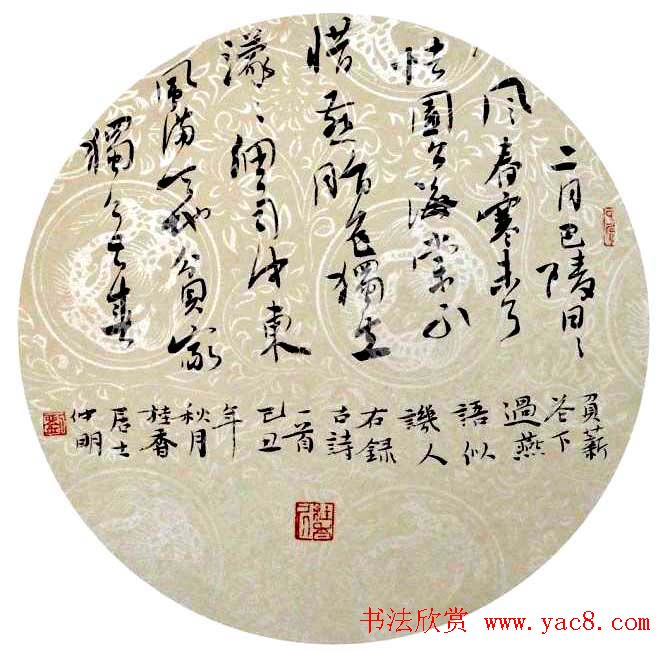 二月巴陵日〻
风春寒未了
怯園公海棠不
惜燕脂色獨立
濛〻細雨中東
風滿天地貧家
獨無春
負薪
花下
過燕
語似
譏人
右録
古詩
一首
己丑
年
秋月
桂香
居士
仲明
书法欣赏 www.yac8.com